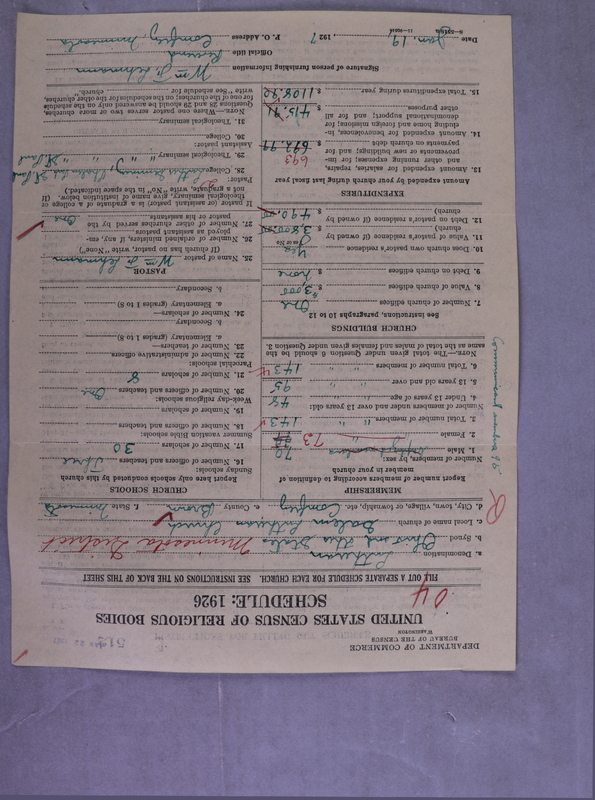 DEPARTMENT OF COMMERCE
BUREAU OF THE CENSUS
WASHINGTON
UNITED STATES CENSUS OF RELIGIOUS BODIES
SCHEDULE: 1926
04
FILL OUT A SEPARATE SCHEDULE FOR EACH CHURCH. SEE INSTRUCTIONS ON THE BACK OF THIS SHEET
a. Denomination Lutheran
b. Synod Ohio and other States Minnesota District
c. Local name of church Salem Lutheran Church
d. City, town, village, or township, etc. Comfrey e. County Brown f. State Minnesota
MEMBERSHIP
Report number of members according to definition of member in your church
Number of members, by sex:
1. Male 70
2. Female 73
3. Total number of members 143
Number of members under and over 13 years old:
4. Under 13 years of age 48
5. 13 years old and over 95
6. Total number of members 143
NOTE.—The total given under Question 6 should be the same as the total of males and females given under Question 3.
Communicant members 95
CHURCH BUILDINGS
See instructions, paragraphs 10 to 12
7. Number of church edifices One
8. Value of church edifices $ 3,000
9. Debt on church edifices $ none
10. Does church own pastor's residence Yes
(Yes or No)
11. Value of pastor's residence (if owned by church) $ 3,800.00
12. Debt on pastor's residence (if owned by church) $ 490.00
EXPENDITURES
Amount expended by your church during last fiscal year
13. Amount expended for salaries, repairs, and other running expenses; for improvements or new buildings; and for payments on church debt $ 692.99
693
14. Amount expended for benevolences, including home and foreign missions; for denominational support; and for all other purposes $ 415.91
15. Total expenditures during year $ 1108.90
CHURCH SCHOOLS
Report here only schools conducted by this church
Sunday schools:
16. Number of officers and teachers Three
17. Number of scholars 30
Summer vacation Bible schools:
18. Number of officers and teachers
19. Number of scholars
Week-day religious schools:
20. Number of officers and teachers One
21. Number of scholars 8
Parochial schools:
22. Number of administrative officers
23. Number of teachers—
a. Elementary (grades 1 to 8)
b. Secondary
24. Number of scholars—
a. Elementary (grades 1 to 8)
b. Secondary
PASTOR
25. Name of pastor Wm F Lehmann
(If church has no pastor, write "None")
26. Number of ordained ministers, if any, employed as assistant pastors
27. Number of other churches served by the pastor or his assistants One
If pastor (or assistant pastor) is a graduate of a college or theological seminary, give name of institution below. (If not a graduate, write "No" in the space indicated.)
Pastor:
28. College
29. Theological seminary
Assistant pastor:
30. College
31. Theological seminary
NOTE.—Where one pastor serves two or more churches, Questions 28 and 29 should be answered only on the schedule for one of the churches; on the schedules for the other churches, write "See schedule for church."
Signature of person furnishing information Wm F Lehmann
Official title Reverend
P. O. Address Comfrey, Minnesota
Date Jan. 19, 1927